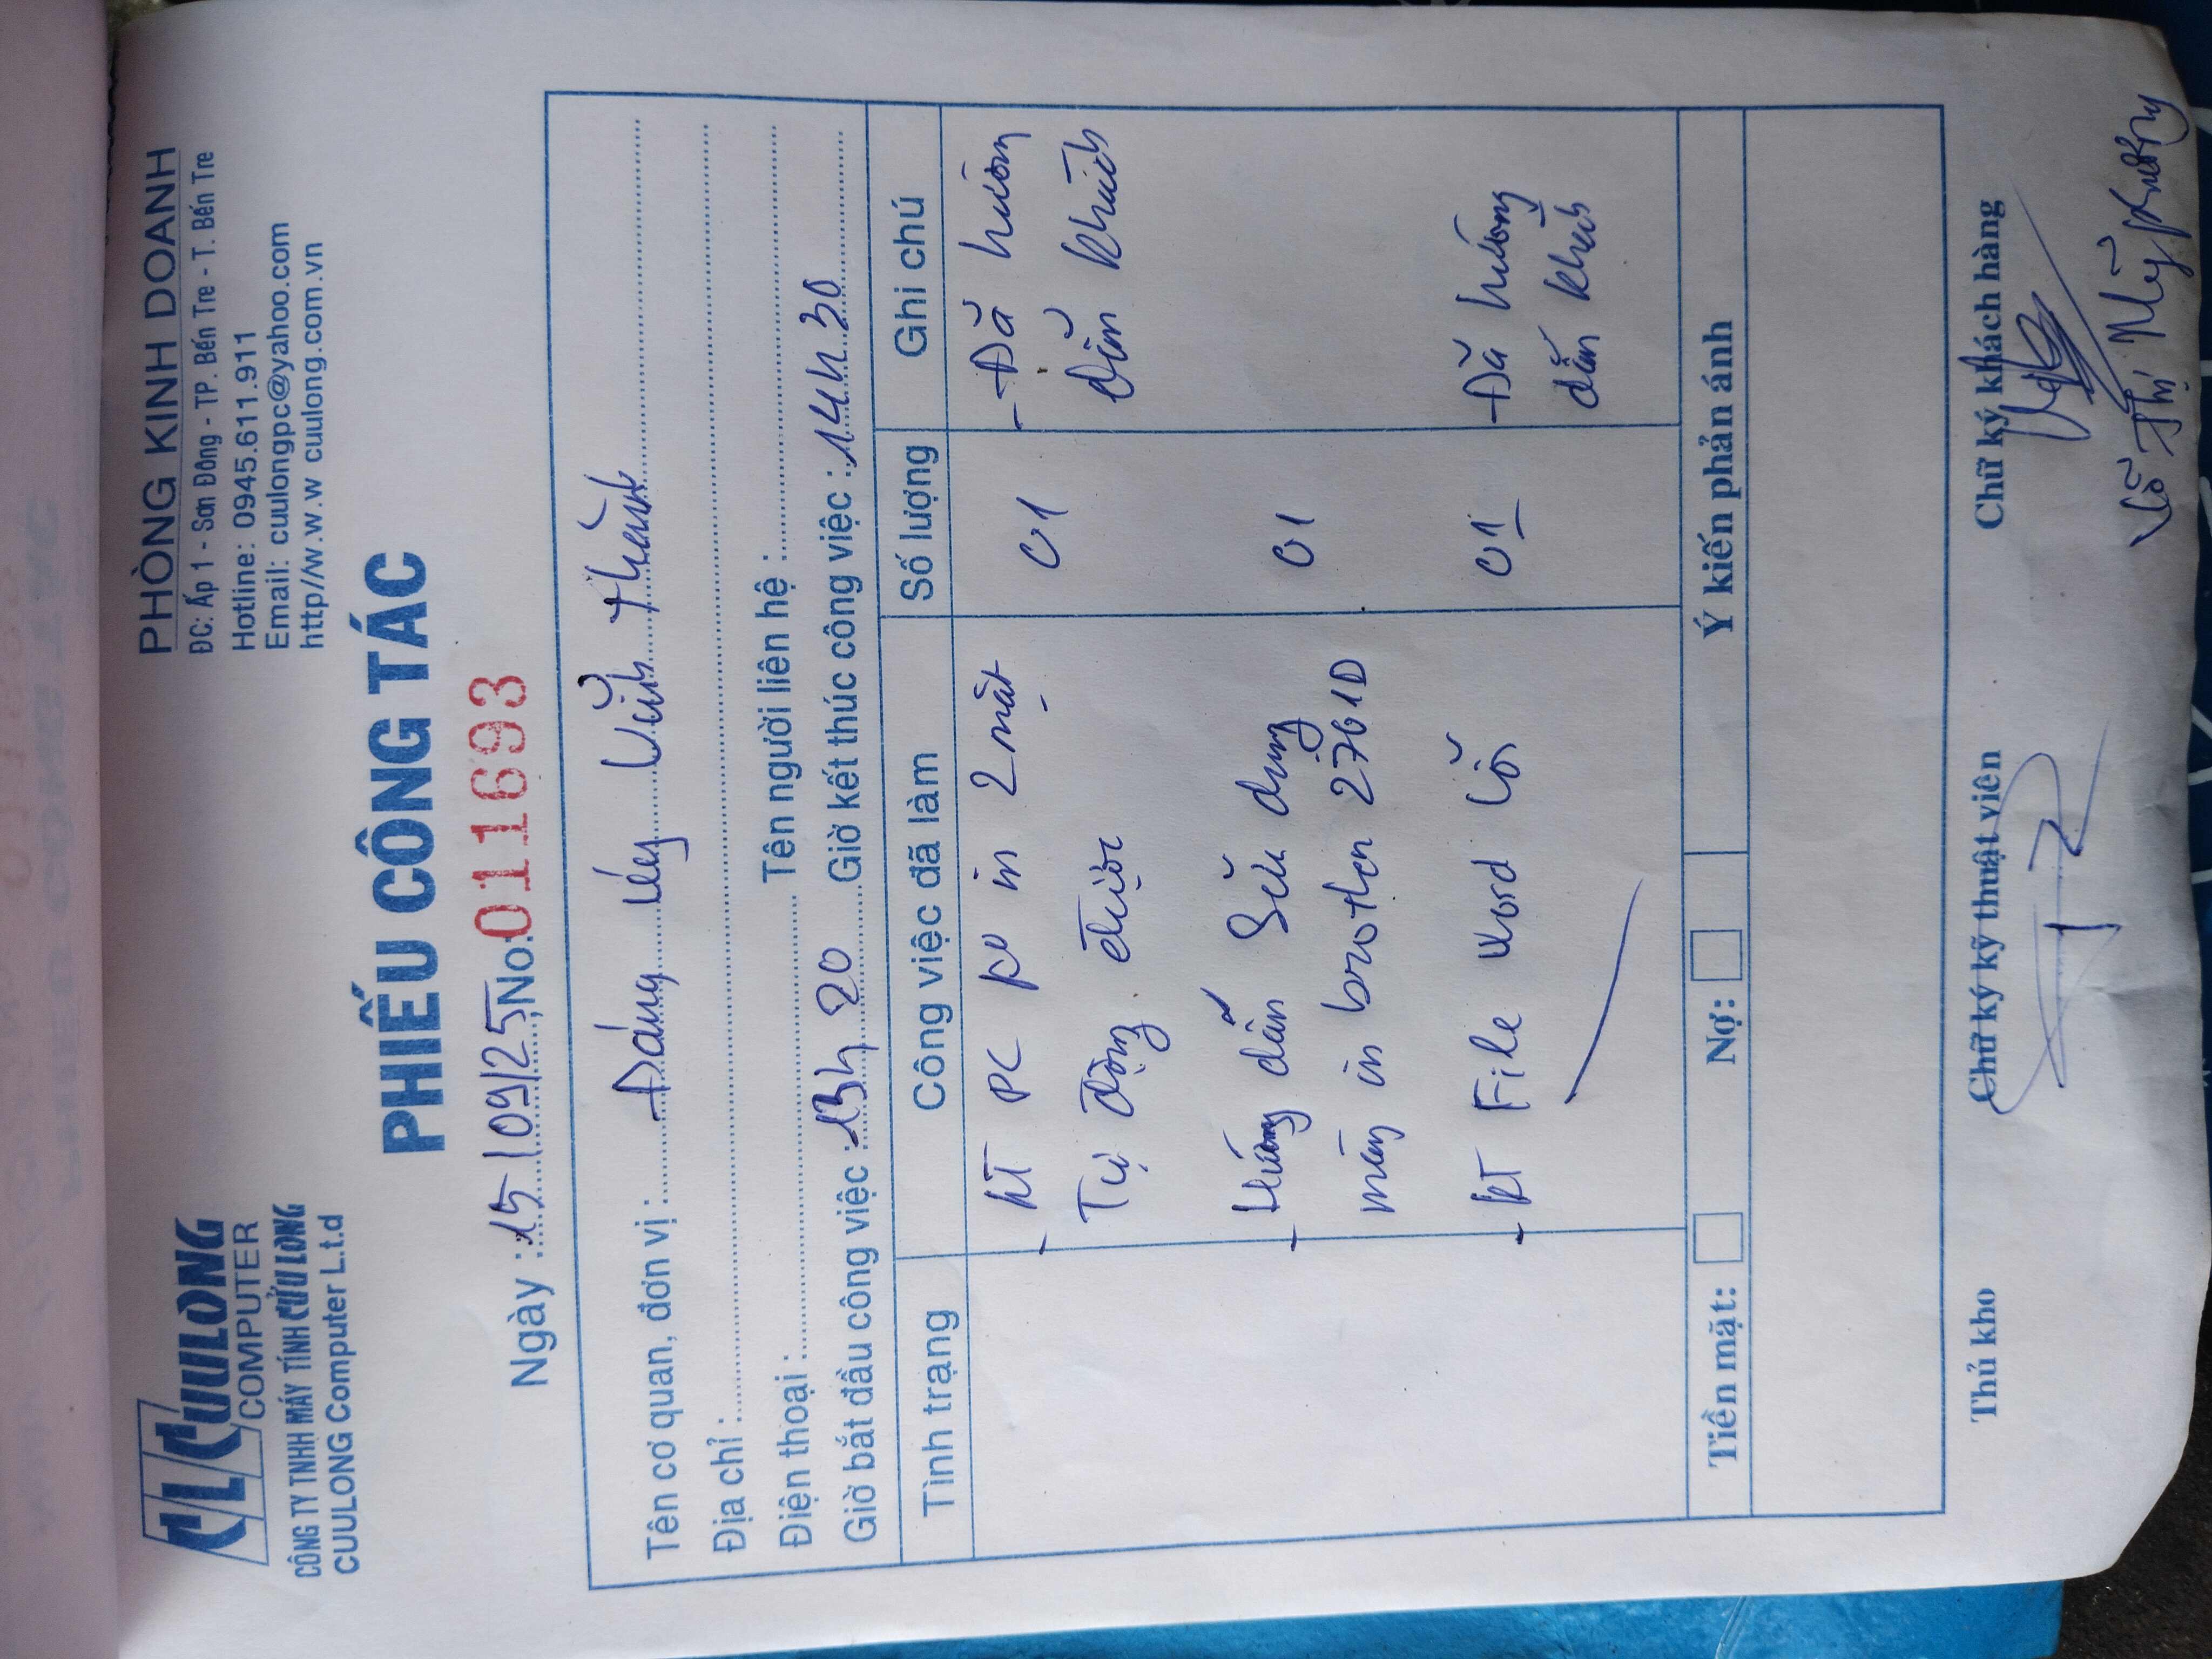 CL CUULONG
COMPUTER
CÔNG TY TNHH MÁY TÍNH CỬU LONG
CUULONG Computer L.t.d
PHÒNG KINH DOANH
ĐC: Ấp 1 - Sơn Đông - TP. Bến Tre - T. Bến Tre
Hotline: 0945.611.911
Email: cuulongpc@yahoo.com
http//w.w.w cuulong.com.vn
PHIẾU CÔNG TÁC
Ngày : 15/09/25, No: 011693
Tên cơ quan, đơn vị : Đảng ủy Vĩnh Thành
Địa chỉ :
Điện thoại : Tên người liên hệ :
Giờ bắt đầu công việc : 13h 20 Giờ kết thúc công việc : 14h 30
Tình trạng Công việc đã làm Số lượng Ghi chú
- KT PC ko in 2 mặt 01 - Đã hướng
Tự động được dẫn khách
- Hướng dẫn sữu dụng 01
máy in brother 2761D
- KT File Word lỗi 01 - Đã hướng
dẫn khách
Tiền mặt: Nợ: Ý kiến phản ánh
Thủ kho Chữ ký kỹ thuật viên Chữ ký khách hàng
Võ Thị Mỹ Phương